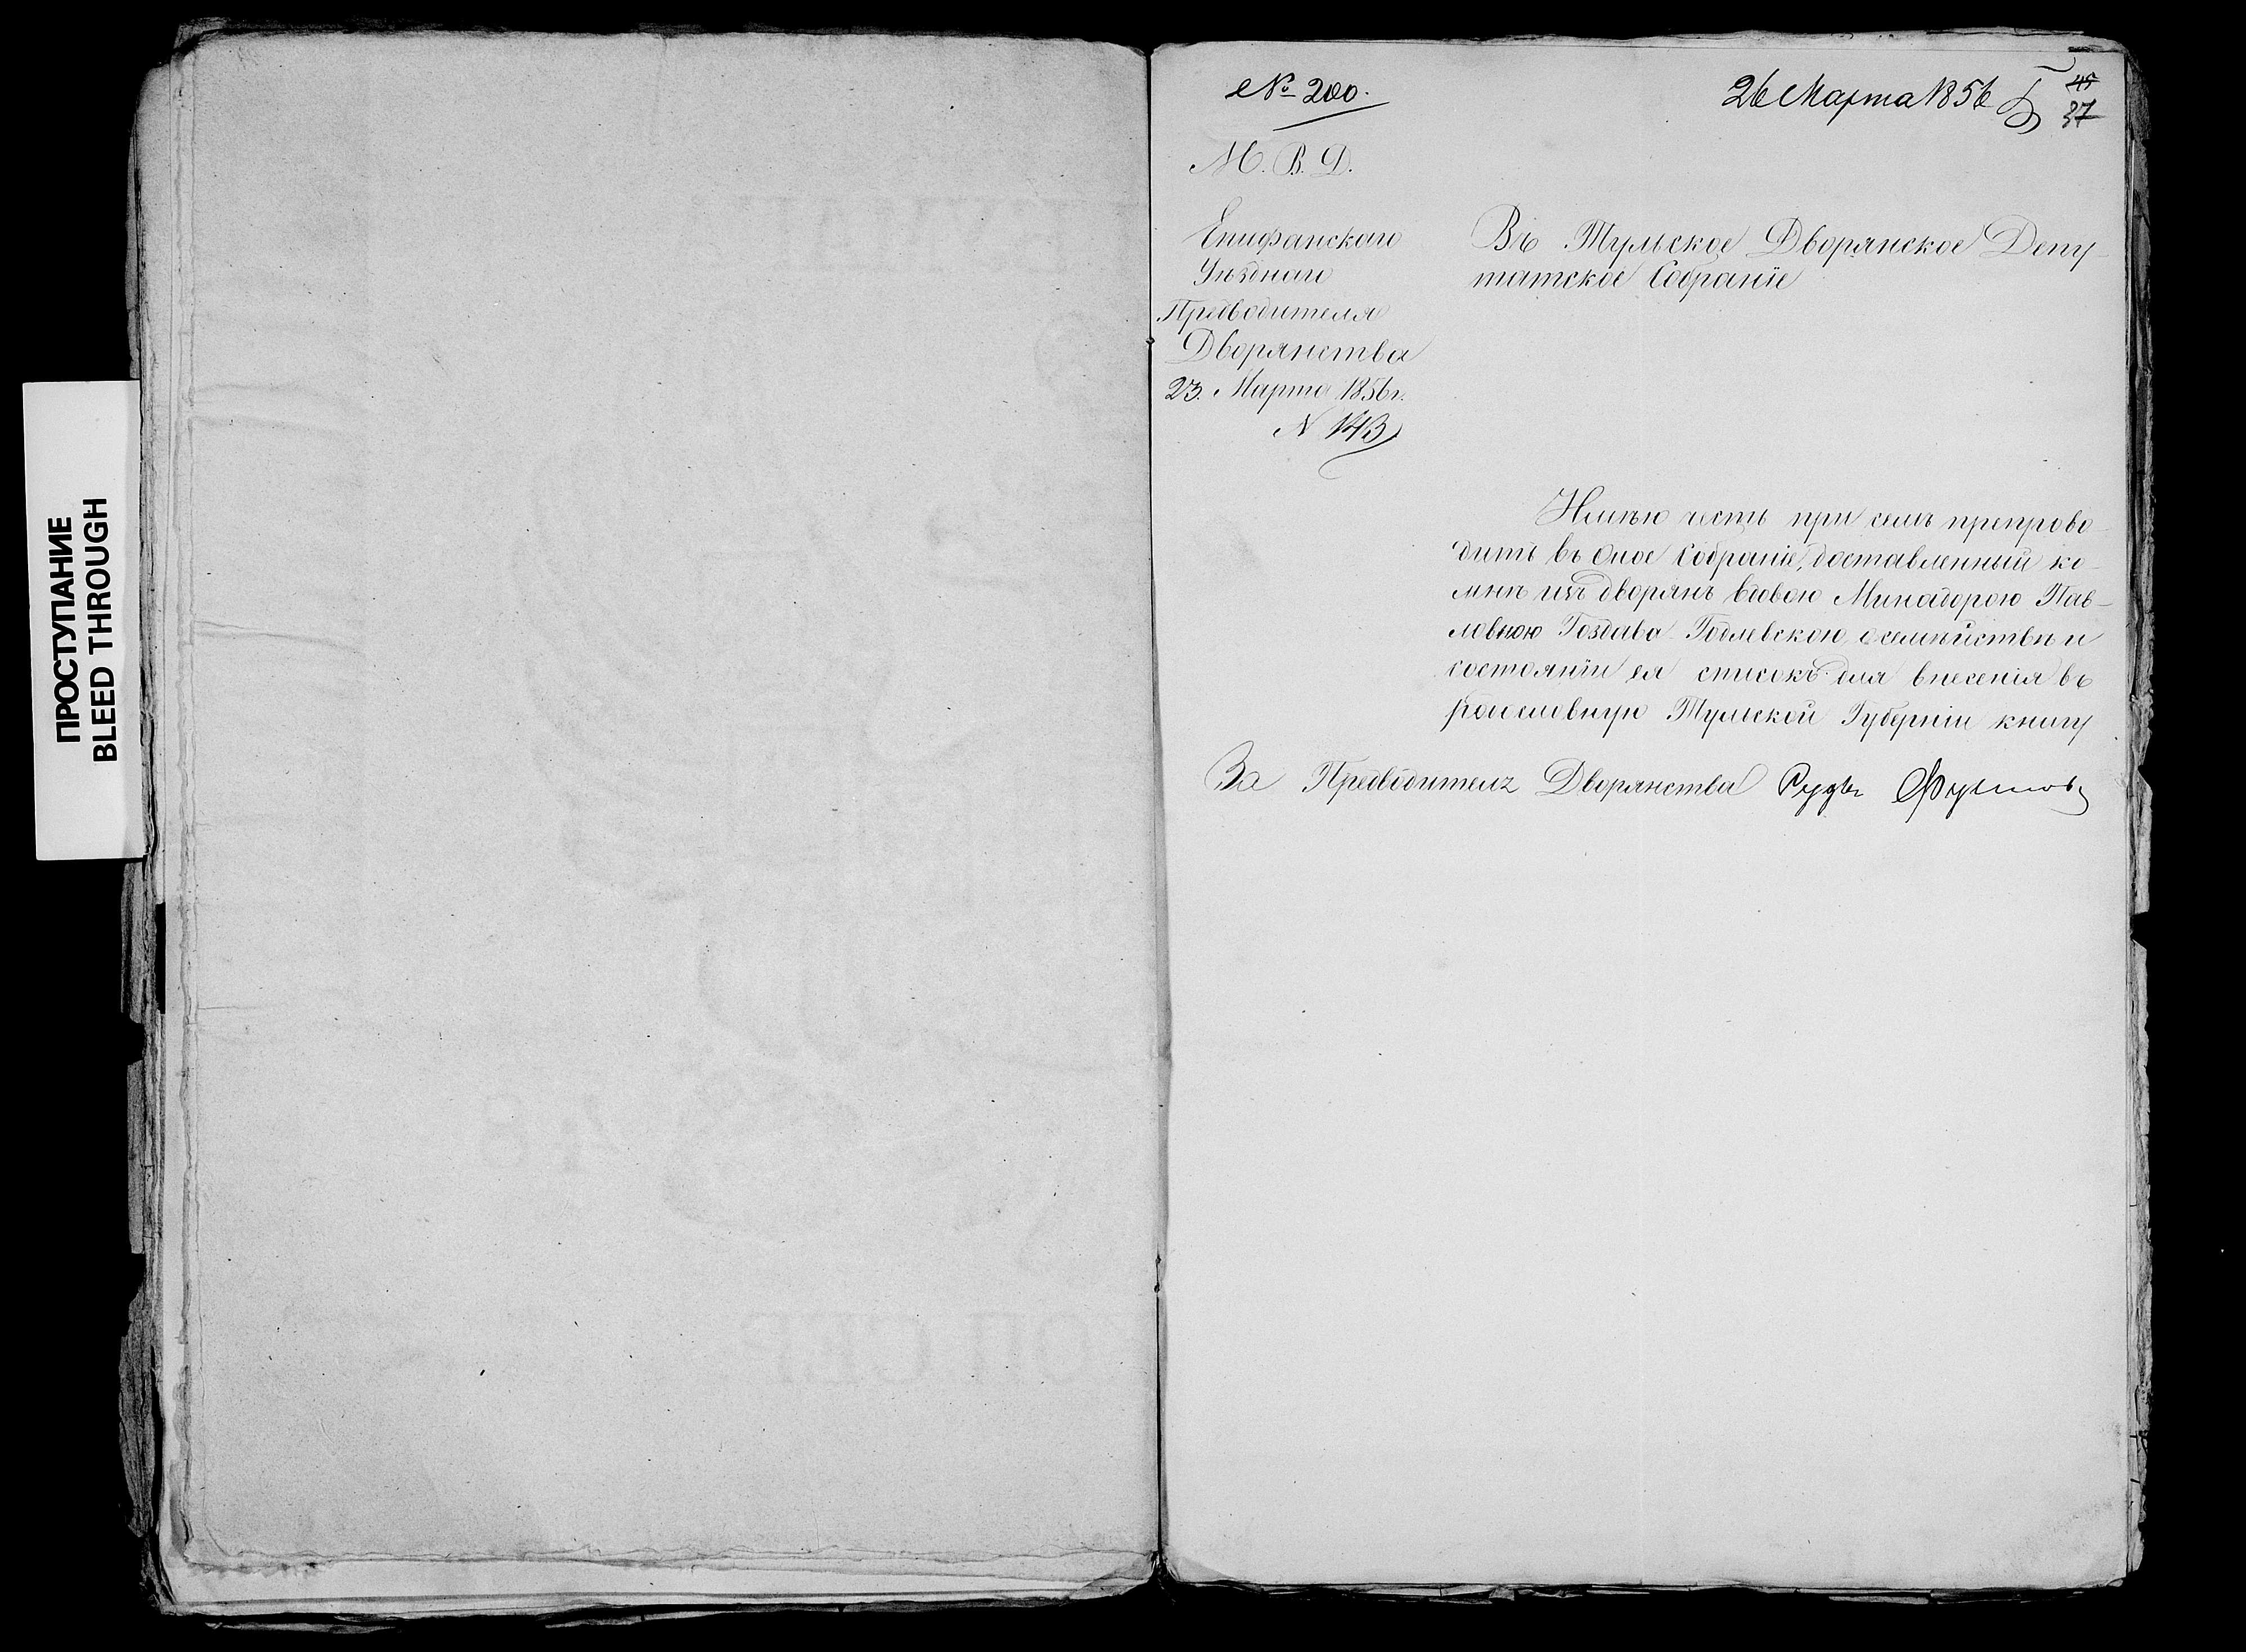 ПРОСТУПАНИЕ
BLEED THROUGH
№ 200.
26 Марта 1856
45
37
М. В. Д.
Епифанскаго
Уѣзднаго
Предводителя
Дворянства
23. Марта 1856 г.
N 143
Въ Тульское Дворянское Депу-
татское Собраніе
Имѣю честь при семъ препрово-
дить въ Оное Собраніе, доставленный ко
мнѣ изъ дворянъ вдовою Минадорою Пав-
ловною Гоздава-Годлевскою о семѣйствѣ и
состояніи ея списокъ для внесенія въ
родословную Тульской Губерніи книгу
За Предводителя Дворянства